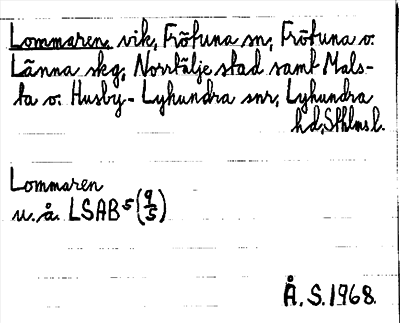 Lommaren, vik, Frötuna sn, Frötuna o.
Länna skg, Norrtälje stad samt Mals-
ta o. Husby-Lyhundra snr, Lyhundra
hd, Sthlms l.
Lommaren
u. å. LSAB⁵ (9/5)
Å. S. 1968.